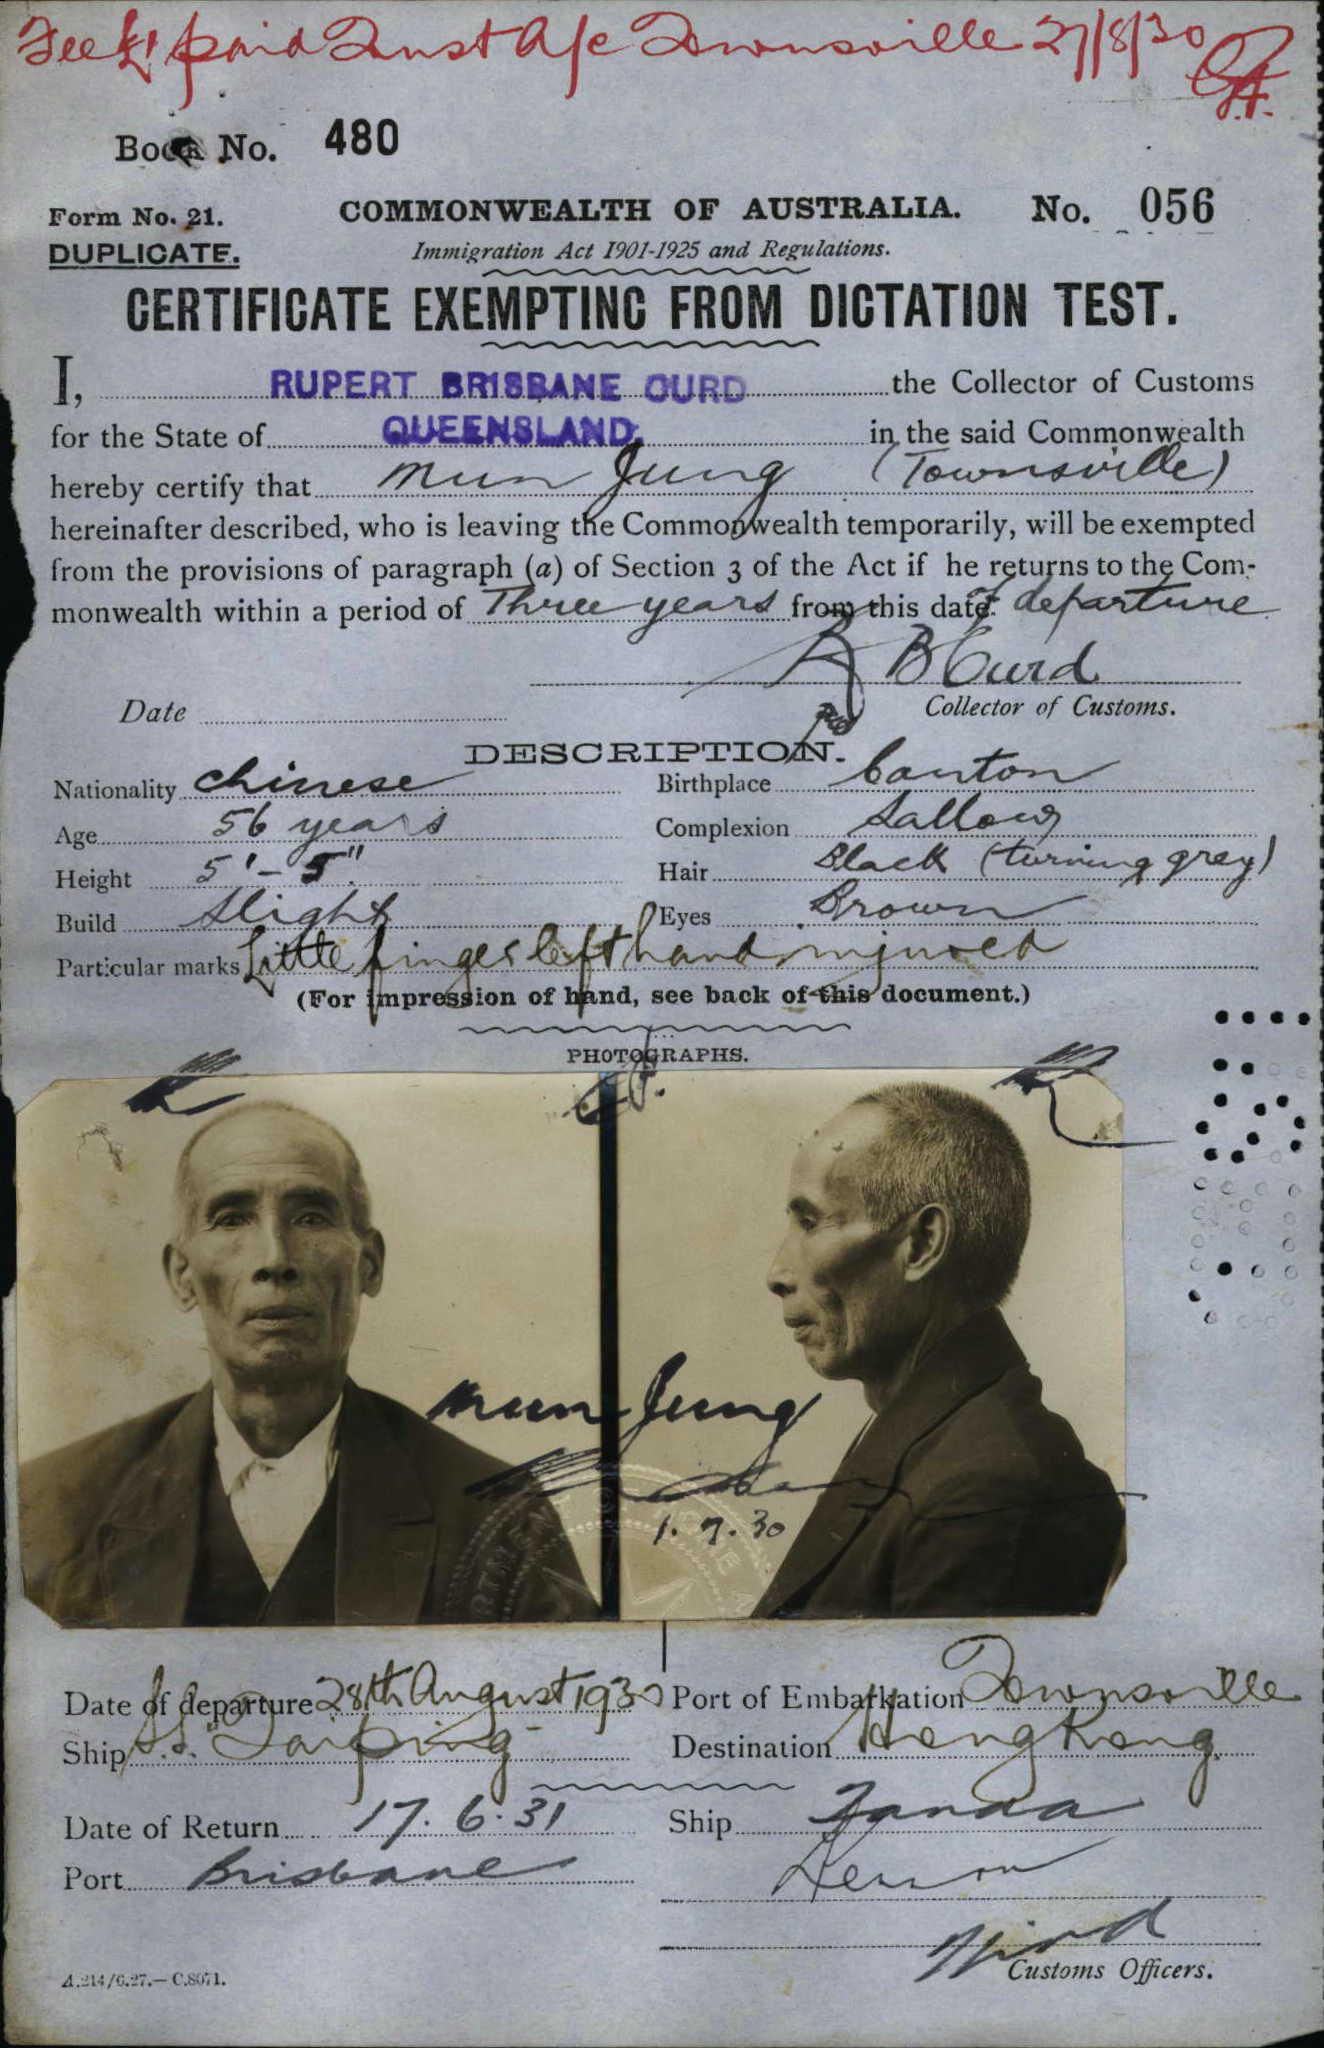 Fee £1 paid Trust A/c Townsville 27/8/30
Book No. 480
Form No. 21.
COMMONWEALTH OF AUSTRALIA.
No. 056
DUPLICATE.
Immigration Act 1901-1925 and Regulations.
CERTIFICATE EXEMPTING FROM DICTATION TEST.
I, RUPERT BRISBANE CURD the Collector of Customs
for the State of QUEENSLAND. in the said Commonwealth
hereby certify that Mun Jung (Townsville)
hereinafter described, who is leaving the Commonwealth temporarily, will be exempted
from the provisions of paragraph (a) of Section 3 of the Act if he returns to the Com-
monwealth within a period of Three years from this date of departure
R B Curd
Date
Collector of Customs.
DESCRIPTION.
Nationality Chinese
Birthplace Canton
Age 56 years
Complexion Sallow
Height 5'-5"
Hair Black (turning grey)
Build Slight
Eyes Brown
Particular marks Little finger left hand injured
(For impression of hand, see back of this document.)
PHOTOGRAPHS.
Mun Jung
1.7.30
Date of departure 28th August 1930
Port of Embarkation Townsville
Ship S.S. "Taiping"
Destination Hong Kong.
Date of Return 17.6.31
Ship Tanda
Port Brisbane
Customs Officers.
A.214/6.27.—C.8071.